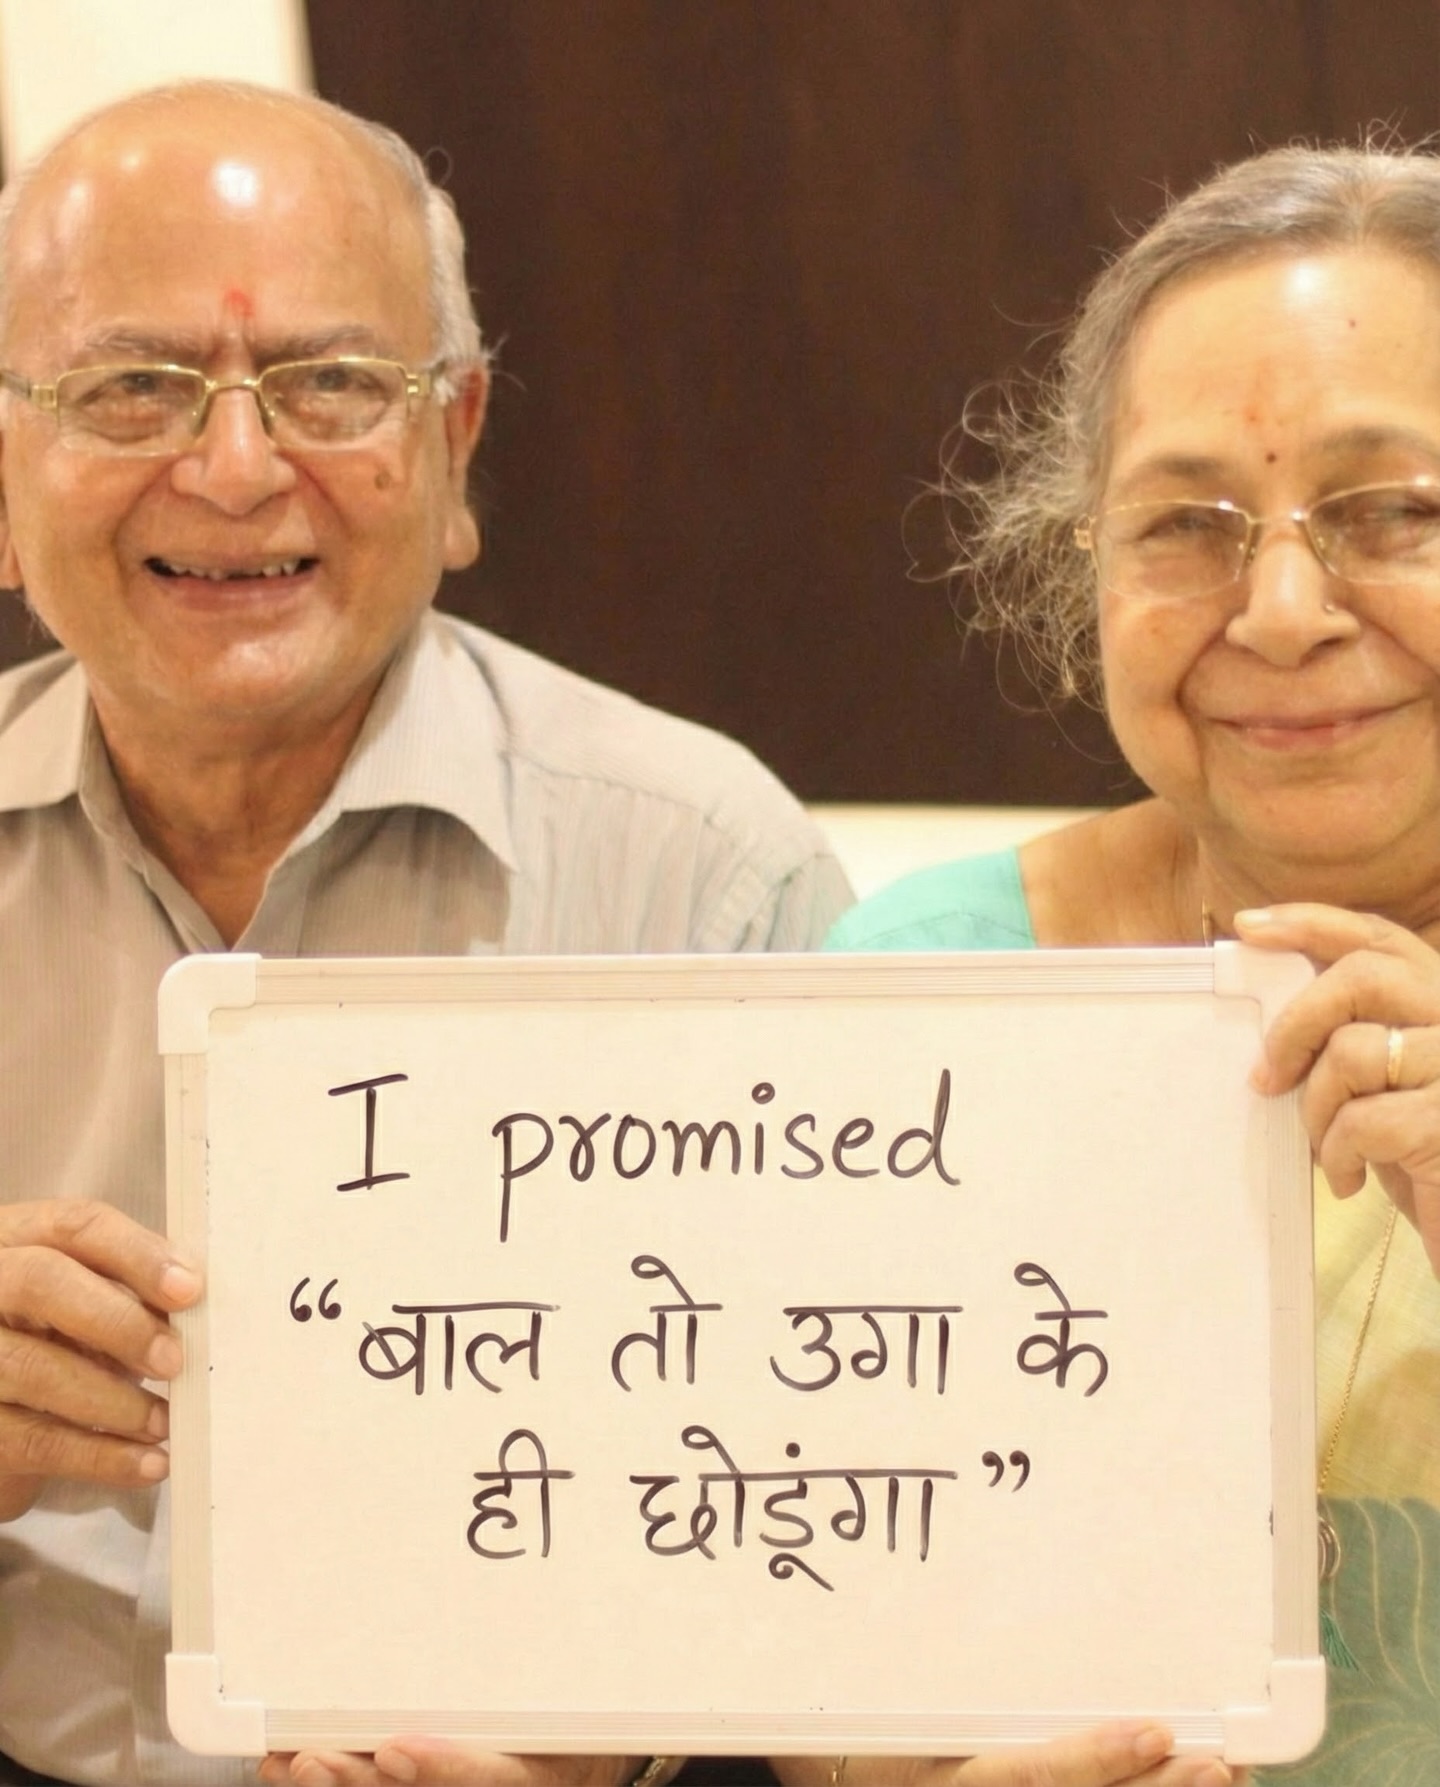 I promised
“बाल तो उगा के
ही छोडूंगा”